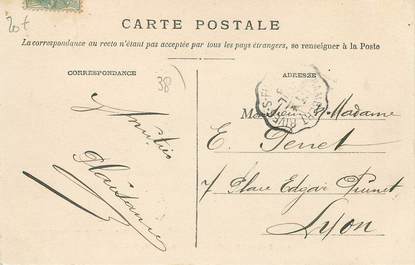 CARTE POSTALE
La correspondance au recto n'étant pas acceptée par tous les pays étrangers, se renseigner à la Poste
CORRESPONDANCE
ADRESSE
38
Monsieur Madame
E. Perret
7 Place Edgar
Lyon